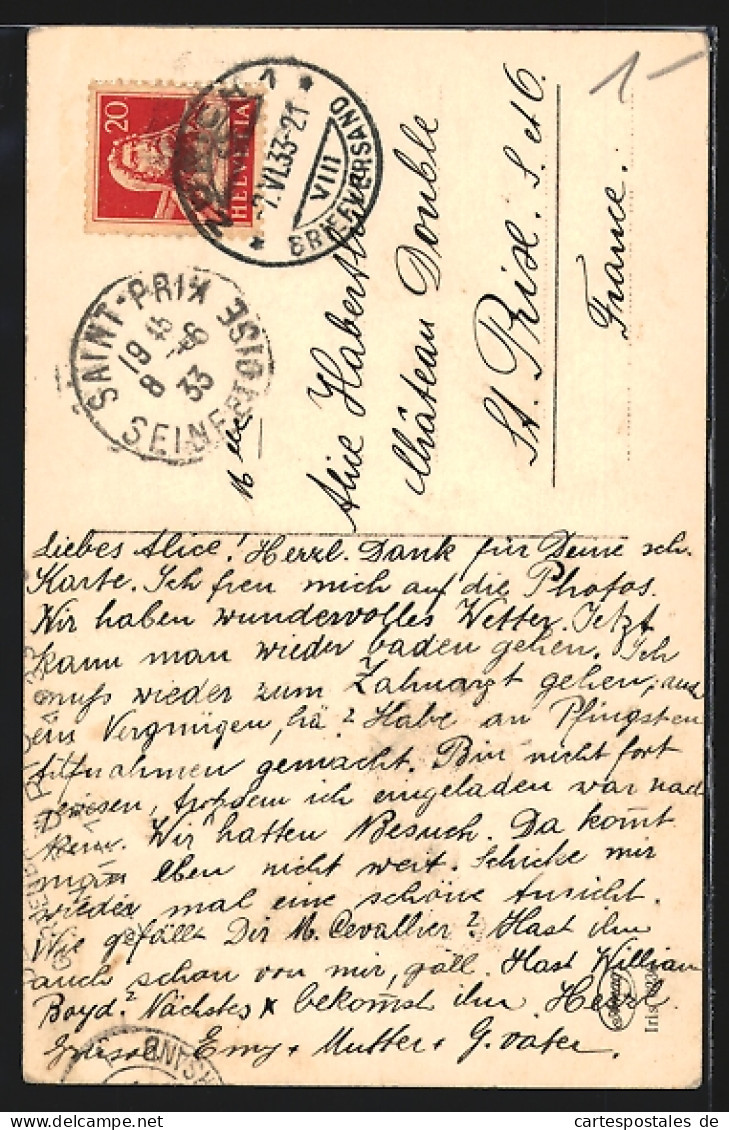 1-
20
HELVETIA
ZÜRICH 1
-7.VI.33-21
VIII
BRIEFVERSAND
SAINT-PRIX
19 45
8 -6
33
SEINE ET OISE
Alice
Château Double
St. Prix. S. et O.
France.
Liebes Alice! Herzl. Dank für Deine sch.
Karte. Ich freu mich auf die Photos.
Wir haben wundervolles Wetter. Jetzt
kann man wieder baden gehen. Ich
muss wieder zum Zahnarzt gehen, auch
ein Vergnügen, hä? Habe an Pfingsten
Aufnahmen gemacht. Bin nicht fort
gewesen, trotzdem ich eingeladen war nach
Wir hatten Besuch. Da kommt
man eben nicht weit. Schicke mir
wieder mal eine schöne Ansicht.
Wie gefällt Dir M. Cevallier? Hast ihn
auch schon von mir, gäll. Hast William
Boyd? Nächstes x bekomst ihn. Herzl.
Grüsse Emy + Mutter + G.vater.
Iris
cartespostales de
cartespostales.de